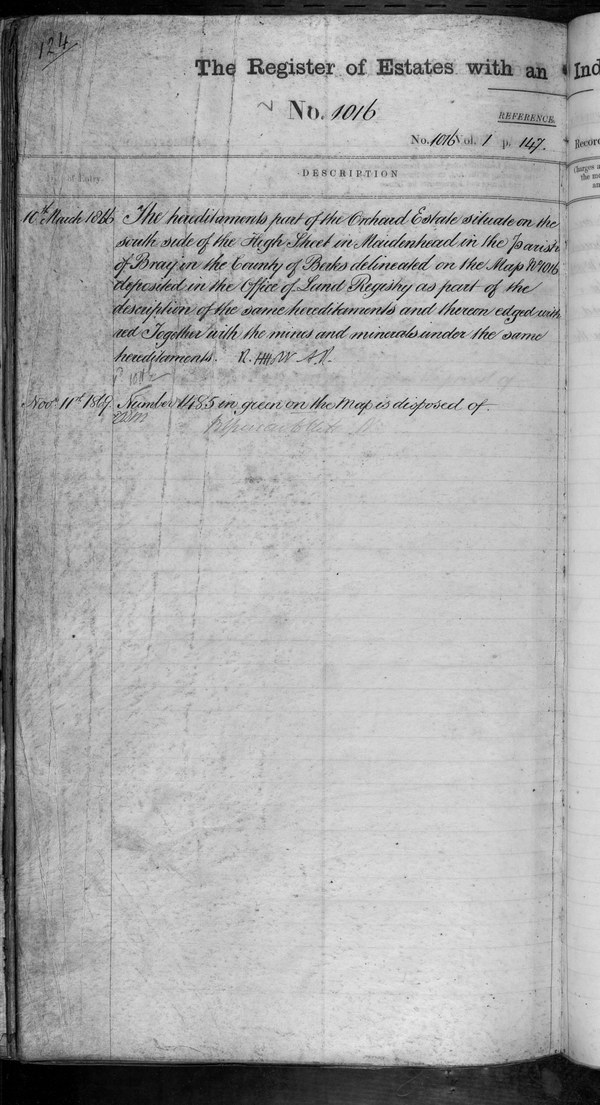 124
The Register of Estates with an Ind
No. 1016
REFERENCE.
No. 1016 Vol. 1 p. 147.
Record
of Entry.
DESCRIPTION
Charges a
the m
an
10th March 1866
The hereditaments part of the Orchard Estate situate on the
south side of the High Street in Maidenhead in the Parish
of Bray in the County of Berks delineated on the Map No 1016
deposited in the Office of Land Registry as part of the
description of the same hereditaments and thereon edged with
red Together with the mines and minerals under the same
hereditaments.
Nov. 11th 1869. Number 1485 in green on the Map is disposed of.